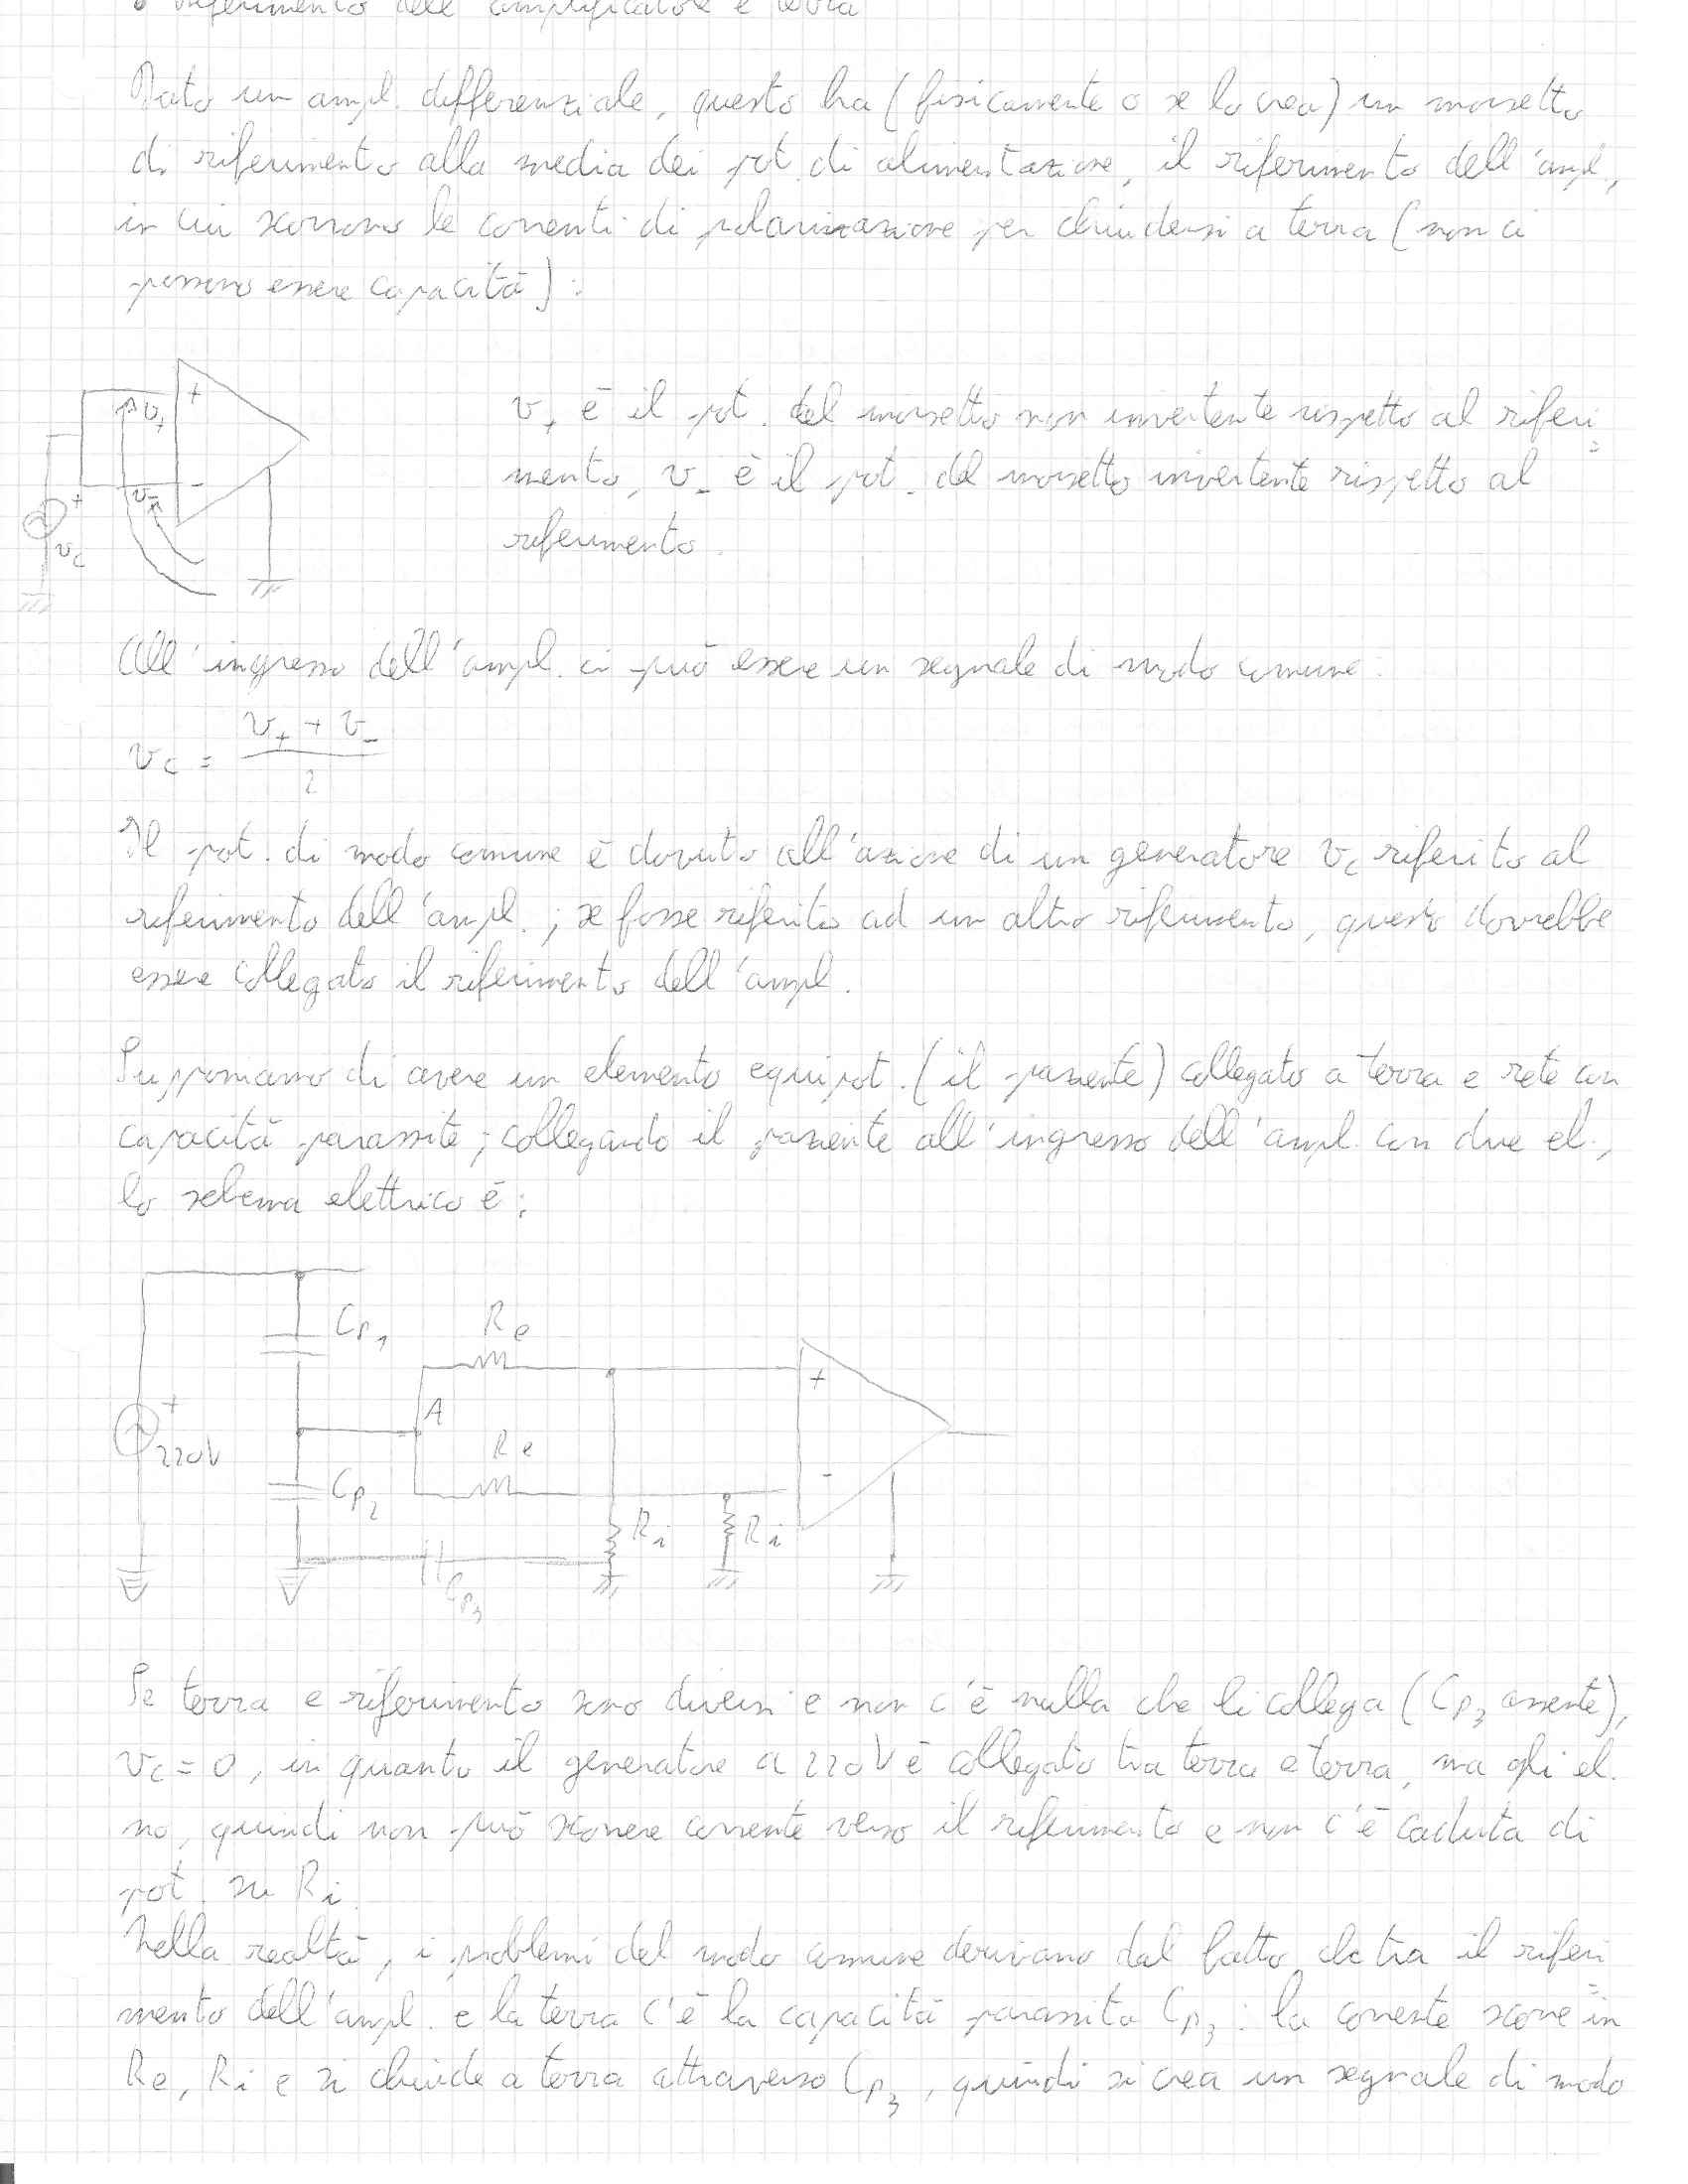 • riferimento dell'amplificatore e terra
Dato un ampl. differenziale, questo ha (fisicamente o se lo crea) un morsetto
di riferimento alla media dei pot. di alimentazione, il riferimento dell'ampl.,
in cui scorrono le correnti di polarizzazione per chiudersi a terra (non ci
possono essere capacità):
v+
+
v-
-
+
vc
v+ è il pot. del morsetto non invertente rispetto al riferi
mento, v- è il pot. del morsetto invertente rispetto al
riferimento.
All'ingresso dell'ampl. ci può essere un segnale di modo comune:
vc = (v+ + v-)/2
Il pot. di modo comune è dovuto all'azione di un generatore vc riferito al
riferimento dell'ampl.; se fosse riferito ad un altro riferimento, questo dovrebbe
essere collegato il riferimento dell'ampl.
Supponiamo di avere un elemento equipot. (il paziente) collegato a terra e rete con
capacità parassite; collegando il paziente all'ingresso dell'ampl. con due el.,
lo schema elettrico è:
Cp1
Re
+
A
+
220V
Re
Cp2
-
Ri
Ri
Cp3
Se terra e riferimento sono diversi e non c'è nulla che li collega (Cp3 assente),
vc = 0, in quanto il generatore a 220V è collegato tra terra e terra, ma gli el.
no, quindi non può scorrere corrente verso il riferimento e non c'è caduta di
pot. su Ri.
Nella realtà, i problemi del modo comune derivano dal fatto che tra il riferi
mento dell'ampl. e la terra c'è la capacità parassita Cp3: la corrente scorre in
Re, Ri e si chiude a terra attraverso Cp3, quindi si crea un segnale di modo